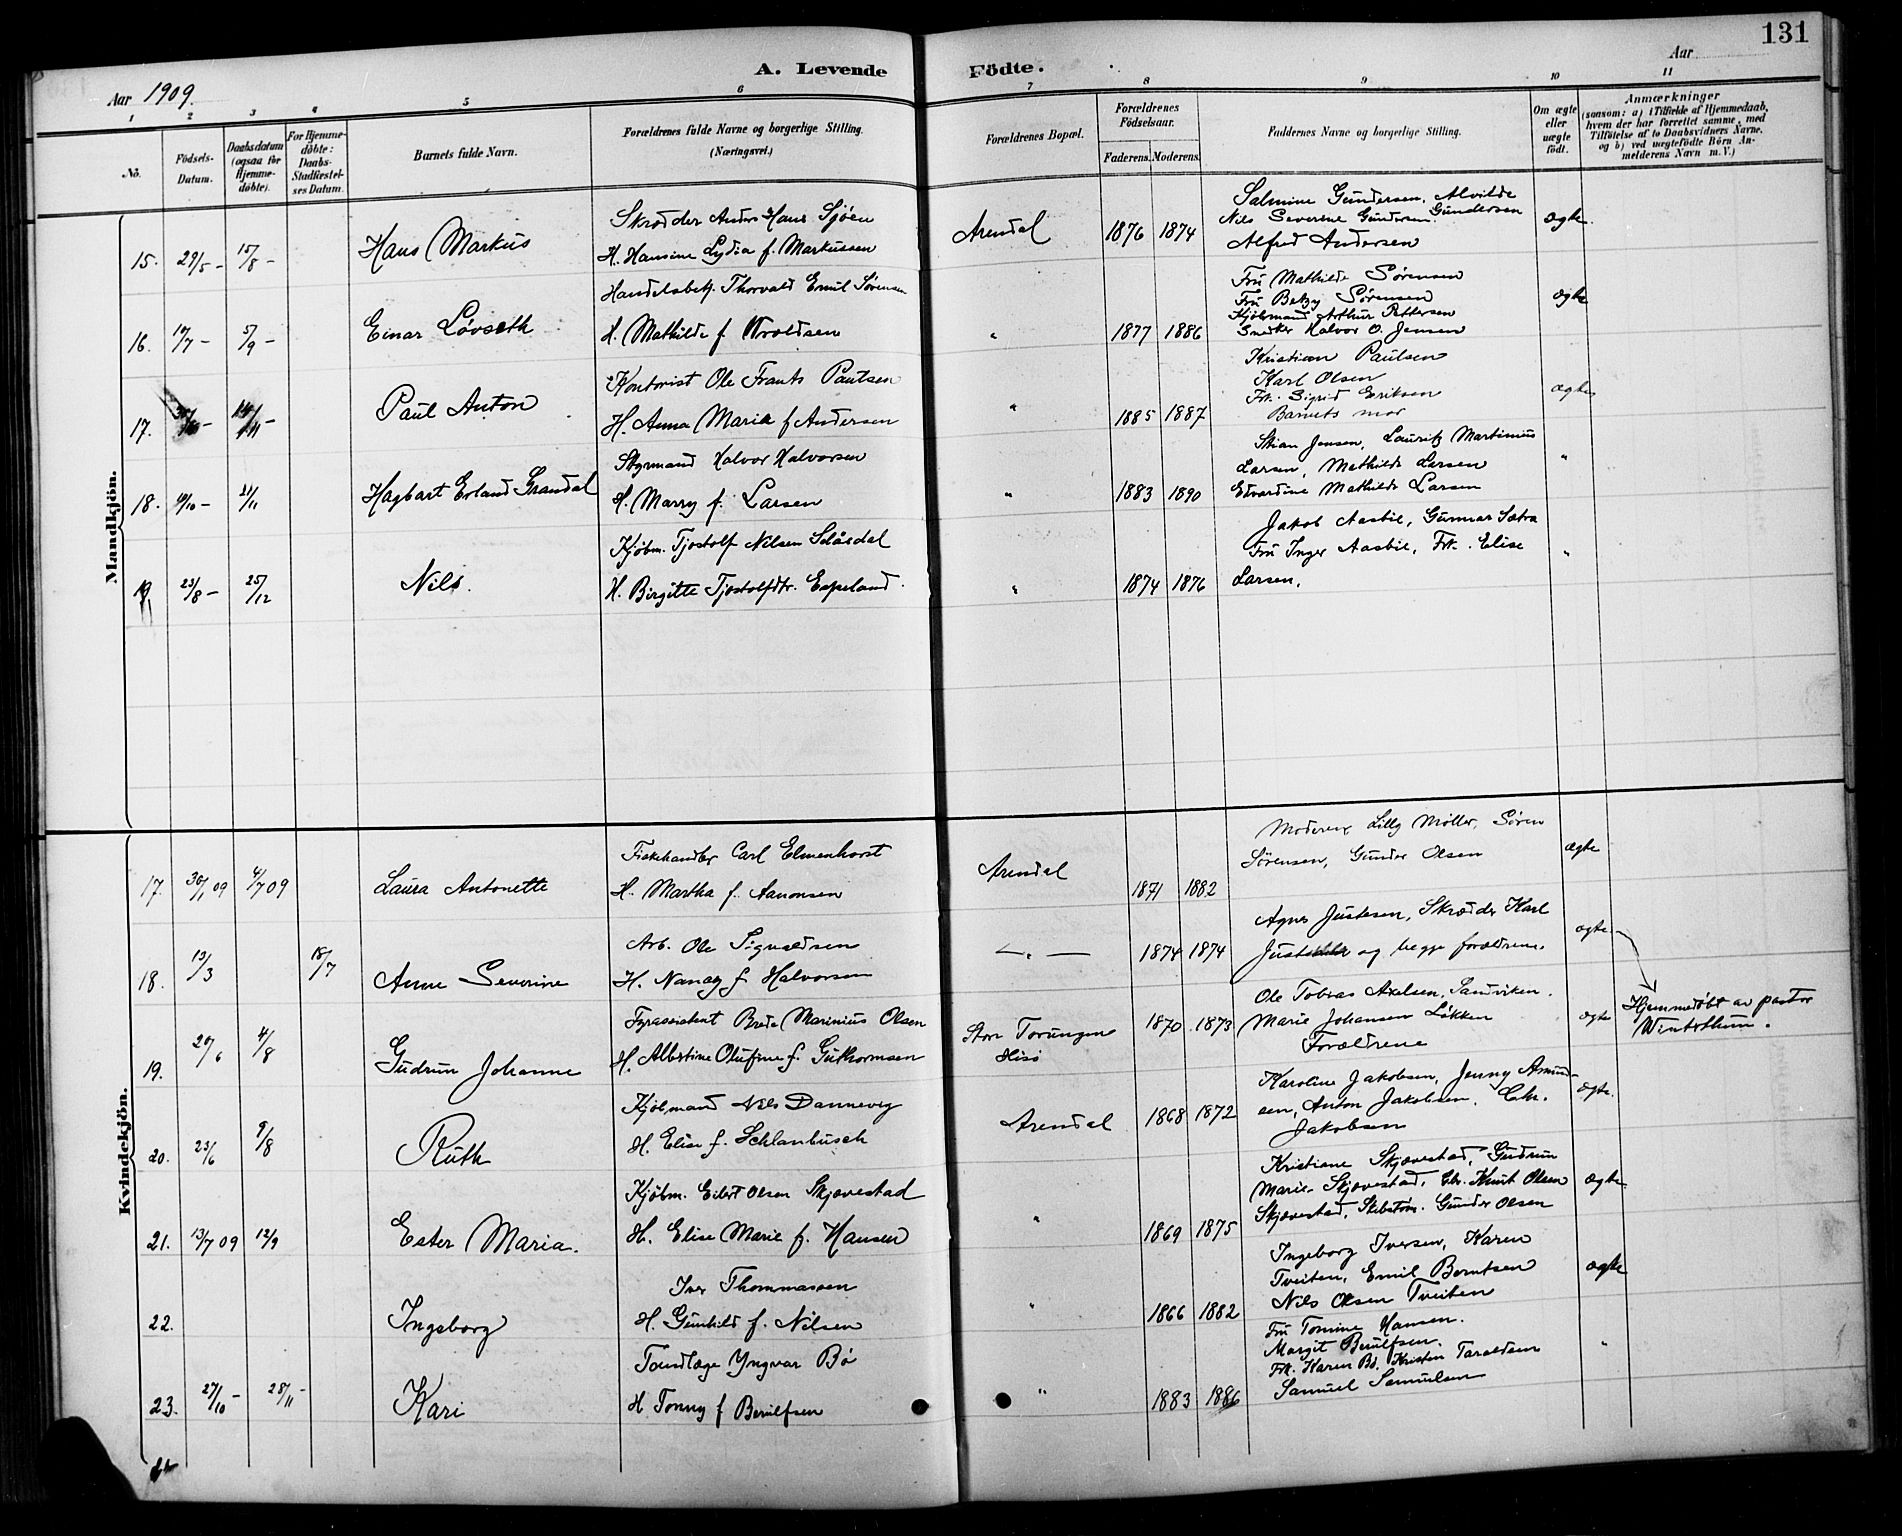 131
A. Levende Födte.
Aar 1909.
Aar
1 2 3 4 5 6 7 8 9 10 11
No.
Födsels-Datum.
Daabsdatum (ogsaa for Hjemmedöbte).
For Hjemmedöbte: Daabs-Stadfæstelses Datum.
Barnets fulde Navn.
Forældrenes fulde Navne og borgerlige Stilling. (Næringsvei.)
Forældrenes Bopæl.
Forældrenes Födselsaar.
Faderens. Moderens.
Faddernes Navne og borgerlige Stilling.
Om ægte eller uægte født.
Anmærkninger
(saasom: a) i Tilfælde af Hjemmedaab, hvem der har forrettet samme, med Tilföielse af to Daabsvidners Navne, og b) ved uægtefödte Börn Anmelderens Navn m. V.)
Mandkjön.
Skrædder Anders Hans Sjöen Salmine Gundersen, Alvilde
15. 29/5 - 15/8 - Hans Markus H. Hansine Lydia f. Markussen Arendal 1876 1874 Nils Severine Gundersen Gundersen ægte
Alfred Andersen
Handelsbetj. Thorvald Emil Sørensen Fru Mathilde Sørensen
Fru Betzy Sørensen ægte
Kjøbmand Arthur Pettersen
16. 17/7 - 5/9 - Einar Løvseth H. Mathilde f. Wroldsen " 1877 1886 Snedker Halvor O. Jensen
Kontorist Ole Frants Paulsen Kristian Paulsen
Karl Olsen
Frk. Sigrid Eriksen ægte
17. Paul Anton H. Anna Marie f Andersen " 1885 1887 Barnets mor
Styrmand Halvor Halvorsen Stian Jensen, Lauritz Martinius
Larsen, Mathilde Larsen "
18. 4/10 - 21/11 Hagbart Erland Grandal H. Marry f. Larsen " 1883 1890 Edvardine Mathilde Larsen
Kjøbm. Tjostolf Nilsen Selåsdal Jakob Aasbie, Gunnar Sætra
Fru Inger Aasbie, Frk. Elise "
19 23/8 - 25/12 Nils. H. Birgitte Tjostolfdtr. Espeland. " 1874 1876 Larsen.
Kvindekjön.
Fiskehandler Carl Elmenhorst Moderen Lilly Møller, Søren
17. 30/1 09 4/7 09 Laura Antonette H. Martha f. Aanonsen Arendal 1871 1882 Sørensen, Gunder Olsen ægte
Arb. Ole Sigvaldsen Agnes Justesen, Skrædder Karl
18. 13/3 18/7 Anne Severine H. Nanny f. Halvorsen — " — 1874 1874 og begge forældrene. ægte
Fyrassistent Brede Marinius Olsen Ole Tobias Axelsen, Sandviken.
19. 20/6 4/8 Gudrun Johanne H. Albertine Olufine f. Guthormsen Store Torungen Hisö 1870 1873 Marie Johansen Løkken ægte Hjemmedöbt av pastor
Forældrene Winterthun.
Kjøbmand Nils Dannevig Karoline Jakobsen, Jenny Amund-
20. 23/6 9/8 Ruth H. Elise f. Schlanbusch Arendal 1868 1872 sen, Anton Jakobsen, Chr. ægte.
Jakobsen
Kjøbm. Eilert Olsen Skjævestad Kristiane Skjævestad, Gudrun
Marie Skjævestad, Chr. Knut Olsen ægte
21. 13/7 09 12/9 Ester Maria. H. Elise Marie f. Hansen " 1869 1875 Skjævestad, Skibstøm. Gunder Olsen
Iver Thommassen Ingeborg Iversen, Karen
Tveiten, Emil Berntsen ægte
22. Ingeborg H. Gunhild f. Nilsen " 1866 1882 Nils Olsen Tveiten
Tandlæge Yngvar Bö Fru Tomine Hansen.
Margit Berulfsen.
Frk. Karen Bö. Kristen Taraldsen "
23. 27/10 - 28/11 - Kari H Tonny f Berulfsen " 1883 1886 Samuel Samuelsen